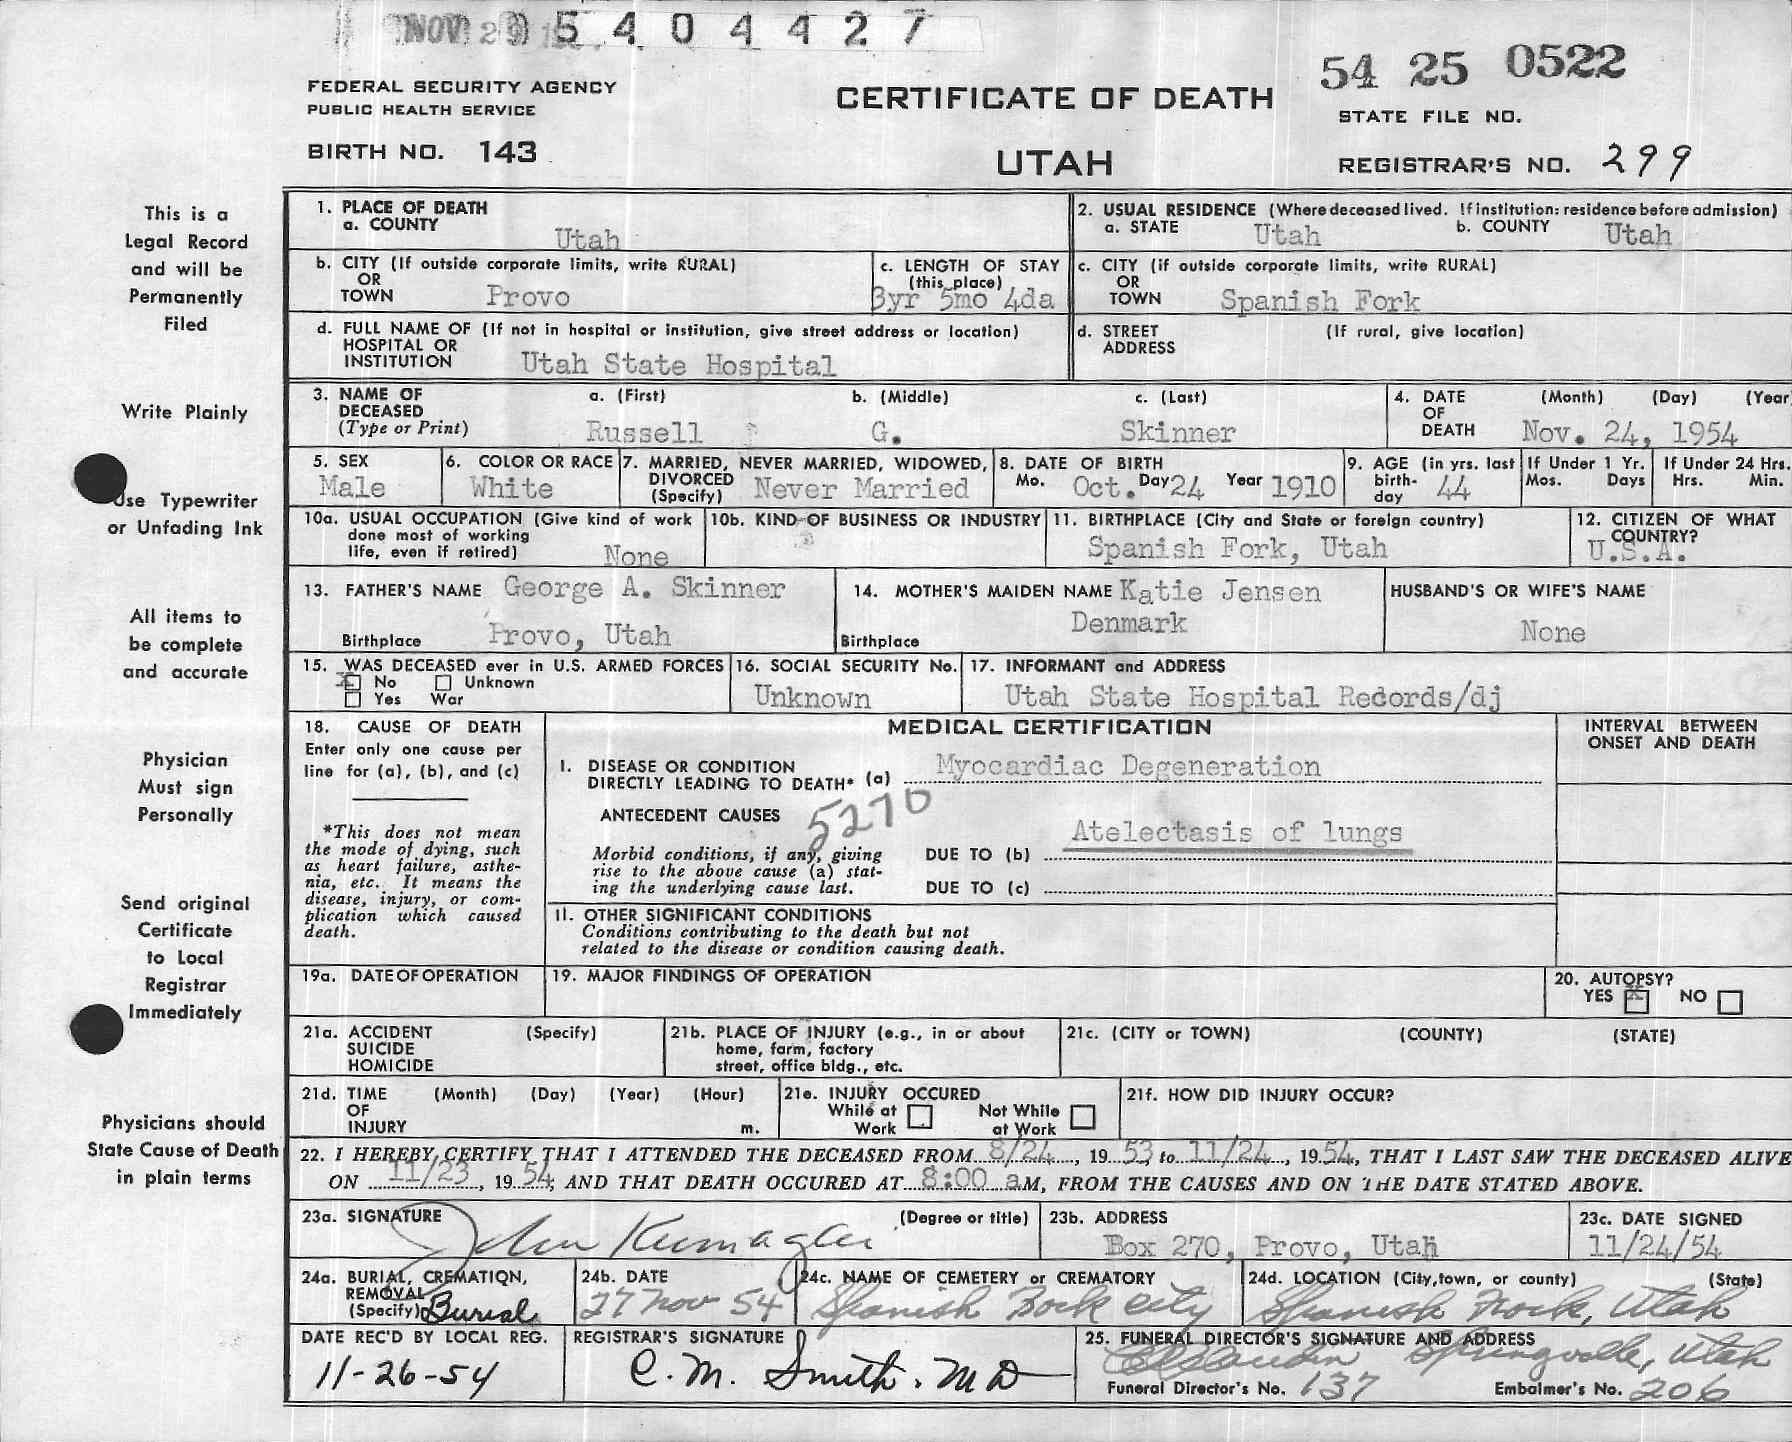 NOV 29
5404427
54 25 0522
FEDERAL SECURITY AGENCY
PUBLIC HEALTH SERVICE
CERTIFICATE OF DEATH
STATE FILE NO.
BIRTH NO. 143
UTAH
REGISTRAR'S NO. 299
This is a
Legal Record
and will be
Permanently
Filed
Write Plainly
Use Typewriter
or Unfading Ink
All items to
be complete
and accurate
Physician
Must sign
Personally
Send original
Certificate
to Local
Registrar
Immediately
Physicians should
State Cause of Death
in plain terms
1. PLACE OF DEATH
a. COUNTY Utah
2. USUAL RESIDENCE (Where deceased lived. If institution: residence before admission)
a. STATE Utah b. COUNTY Utah
b. CITY (If outside corporate limits, write RURAL)
OR
TOWN Provo
c. LENGTH OF STAY
(this place)
3yr 5mo 4da
c. CITY (if outside corporate limits, write RURAL)
OR
TOWN Spanish Fork
d. FULL NAME OF (If not in hospital or institution, give street address or location)
HOSPITAL OR
INSTITUTION Utah State Hospital
d. STREET (If rural, give location)
ADDRESS
3. NAME OF a. (First) b. (Middle) c. (Last)
DECEASED
(Type or Print) Russell G. Skinner
4. DATE (Month) (Day) (Year
OF
DEATH Nov. 24, 1954
5. SEX
Male
6. COLOR OR RACE
White
7. MARRIED, NEVER MARRIED, WIDOWED,
DIVORCED
(Specify) Never Married
8. DATE OF BIRTH
Mo. Oct. Day 24 Year 1910
9. AGE (in yrs. last
birth-
day 44
If Under 1 Yr.
Mos. Days
If Under 24 Hrs.
Hrs. Min.
10a. USUAL OCCUPATION (Give kind of work
done most of working
life, even if retired) None
10b. KIND OF BUSINESS OR INDUSTRY
11. BIRTHPLACE (City and State or foreign country)
Spanish Fork, Utah
12. CITIZEN OF WHAT
COUNTRY?
U.S.A.
13. FATHER'S NAME George A. Skinner
Birthplace Provo, Utah
14. MOTHER'S MAIDEN NAME Katie Jensen
Birthplace Denmark
HUSBAND'S OR WIFE'S NAME
None
15. WAS DECEASED ever in U.S. ARMED FORCES
X No Unknown
Yes War
16. SOCIAL SECURITY No.
Unknown
17. INFORMANT and ADDRESS
Utah State Hospital Records/dj
18. CAUSE OF DEATH
Enter only one cause per
line for (a), (b), and (c)
*This does not mean
the mode of dying, such
as heart failure, asthe-
nia, etc. It means the
disease, injury, or com-
plication which caused
death.
MEDICAL CERTIFICATION
INTERVAL BETWEEN
ONSET AND DEATH
I. DISEASE OR CONDITION
DIRECTLY LEADING TO DEATH* (a) Myocardiac Degeneration
ANTECEDENT CAUSES 5270
Morbid conditions, if any, giving
rise to the above cause (a) stat-
ing the underlying cause last.
DUE TO (b) Atelectasis of lungs
DUE TO (c)
II. OTHER SIGNIFICANT CONDITIONS
Conditions contributing to the death but not
related to the disease or condition causing death.
19a. DATE OF OPERATION
19. MAJOR FINDINGS OF OPERATION
20. AUTOPSY?
YES X NO
21a. ACCIDENT (Specify)
SUICIDE
HOMICIDE
21b. PLACE OF INJURY (e.g., in or about
home, farm, factory
street, office bldg., etc.
21c. (CITY or TOWN) (COUNTY) (STATE)
21d. TIME (Month) (Day) (Year) (Hour)
OF
INJURY m.
21e. INJURY OCCURED
While at Not While
Work at Work
21f. HOW DID INJURY OCCUR?
22. I HEREBY CERTIFY THAT I ATTENDED THE DECEASED FROM 8/24, 19 53, to 11/24, 19 54, THAT I LAST SAW THE DECEASED ALIVE
ON 11/23, 19 54, AND THAT DEATH OCCURED AT 8:00 aM, FROM THE CAUSES AND ON THE DATE STATED ABOVE.
23a. SIGNATURE (Degree or title)
John
23b. ADDRESS
Box 270, Provo, Utah
23c. DATE SIGNED
11/24/54
24a. BURIAL, CREMATION,
REMOVAL
(Specify) Burial
24b. DATE
27 Nov 54
24c. NAME OF CEMETERY or CREMATORY
Spanish Fork City
24d. LOCATION (City, town, or county) (State)
Spanish Fork, Utah
DATE REC'D BY LOCAL REG.
11-26-54
REGISTRAR'S SIGNATURE
C. M. Smith, MD
25. FUNERAL DIRECTOR'S SIGNATURE AND ADDRESS
Springville, Utah
Funeral Director's No. 137 Embalmer's No. 206